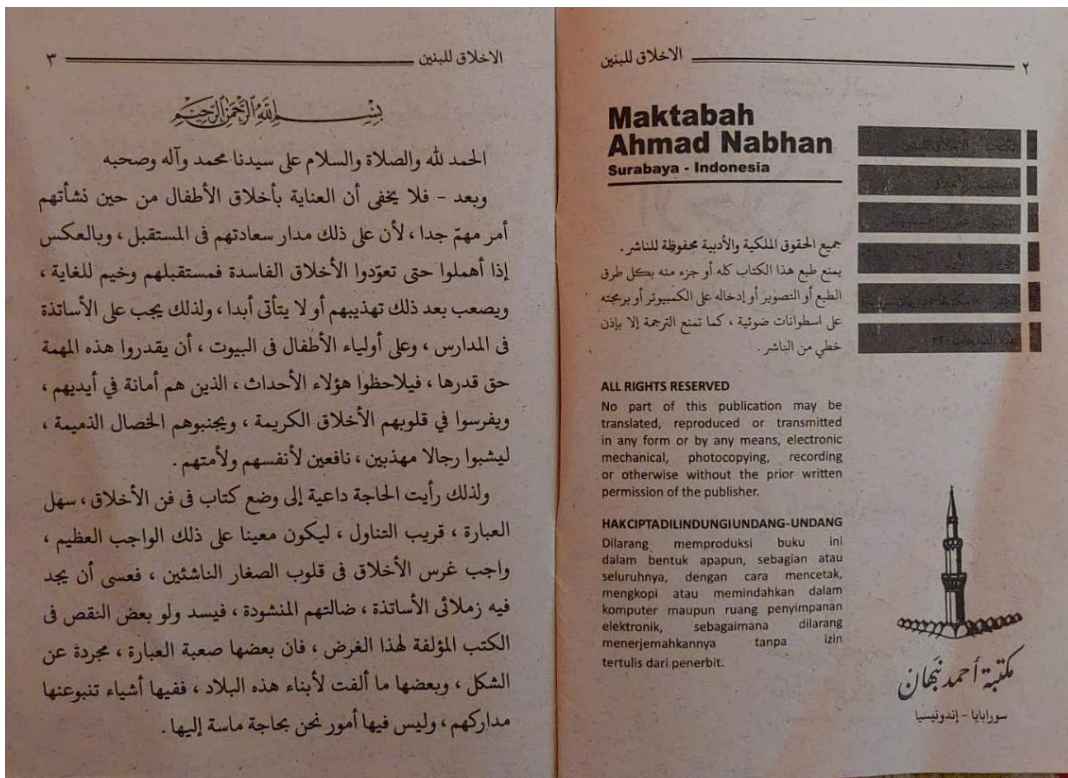 الاخلاق للبنين ٢
Maktabah
Ahmad Nabhan
Surabaya - Indonesia
جميع الحقوق الملكية والأدبية محفوظة للناشر .
يمنع طبع هذا الكتاب كله أو جزء منه بكل طرق
الطبع أو التصوير أو إدخاله على الكمبيوتر أو برمجته
على اسطوانات ضوئية ، كما تمنع الترجمة إلا بإذن
خطي من الناشر .
ALL RIGHTS RESERVED
No part of this publication may be
translated, reproduced or transmitted
in any form or by any means, electronic
mechanical, photocopying, recording
or otherwise without the prior written
permission of the publisher.
HAK CIPTA DILINDUNGI UNDANG-UNDANG
Dilarang memproduksi buku ini
dalam bentuk apapun, sebagian atau
seluruhnya, dengan cara mencetak,
mengkopi atau memindahkan dalam
komputer maupun ruang penyimpanan
elektronik, sebagaimana dilarang
menerjemahkannya tanpa izin
tertulis dari penerbit.
مكتبة أحمد نبهان
سورابايا - إندونيسيا
الاخلاق للبنين ٣
بسم الله الرحمن الرحيم
الحمد لله والصلاة والسلام على سيدنا محمد وآله وصحبه
وبعد - فلا يخفى أن العناية بأخلاق الأطفال من حين نشأتهم
أمر مهمّ جدا ، لأن على ذلك مدار سعادتهم فى المستقبل ، وبالعكس
إذا أهملوا حتى تعوّدوا الأخلاق الفاسدة فمستقبلهم وخيم للغاية ،
ويصعب بعد ذلك تهذيبهم أو لا يتأتى أبدا ، ولذلك يجب على الأساتذة
فى المدارس ، وعلى أولياء الأطفال فى البيوت ، أن يقدروا هذه المهمة
حق قدرها ، فيلاحظوا هؤلاء الأحداث ، الذين هم أمانة في أيديهم ،
ويفرسوا في قلوبهم الأخلاق الكريمة ، ويجنبوهم الخصال الذميمة ،
ليشبوا رجالا مهذبين ، نافعين لأنفسهم ولأمتهم .
ولذلك رأيت الحاجة داعية إلى وضع كتاب فى فن الأخلاق ، سهل
العبارة ، قريب التناول ، ليكون معينا على ذلك الواجب العظيم ،
واجب غرس الأخلاق فى قلوب الصغار الناشئين ، فعسى أن يجد
فيه زملائى الأساتذة ، ضالتهم المنشودة ، فيسد ولو بعض النقص فى
الكتب المؤلفة لهذا الغرض ، فان بعضها صعبة العبارة ، مجردة عن
الشكل ، وبعضها ما ألفت لأبناء هذه البلاد ، ففيها أشياء تنبوعنها
مداركهم ، وليس فيها أمور نحن بحاجة ماسة إليها .